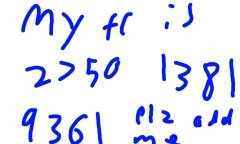 My fc is
2750 1381
9361 plz add
me